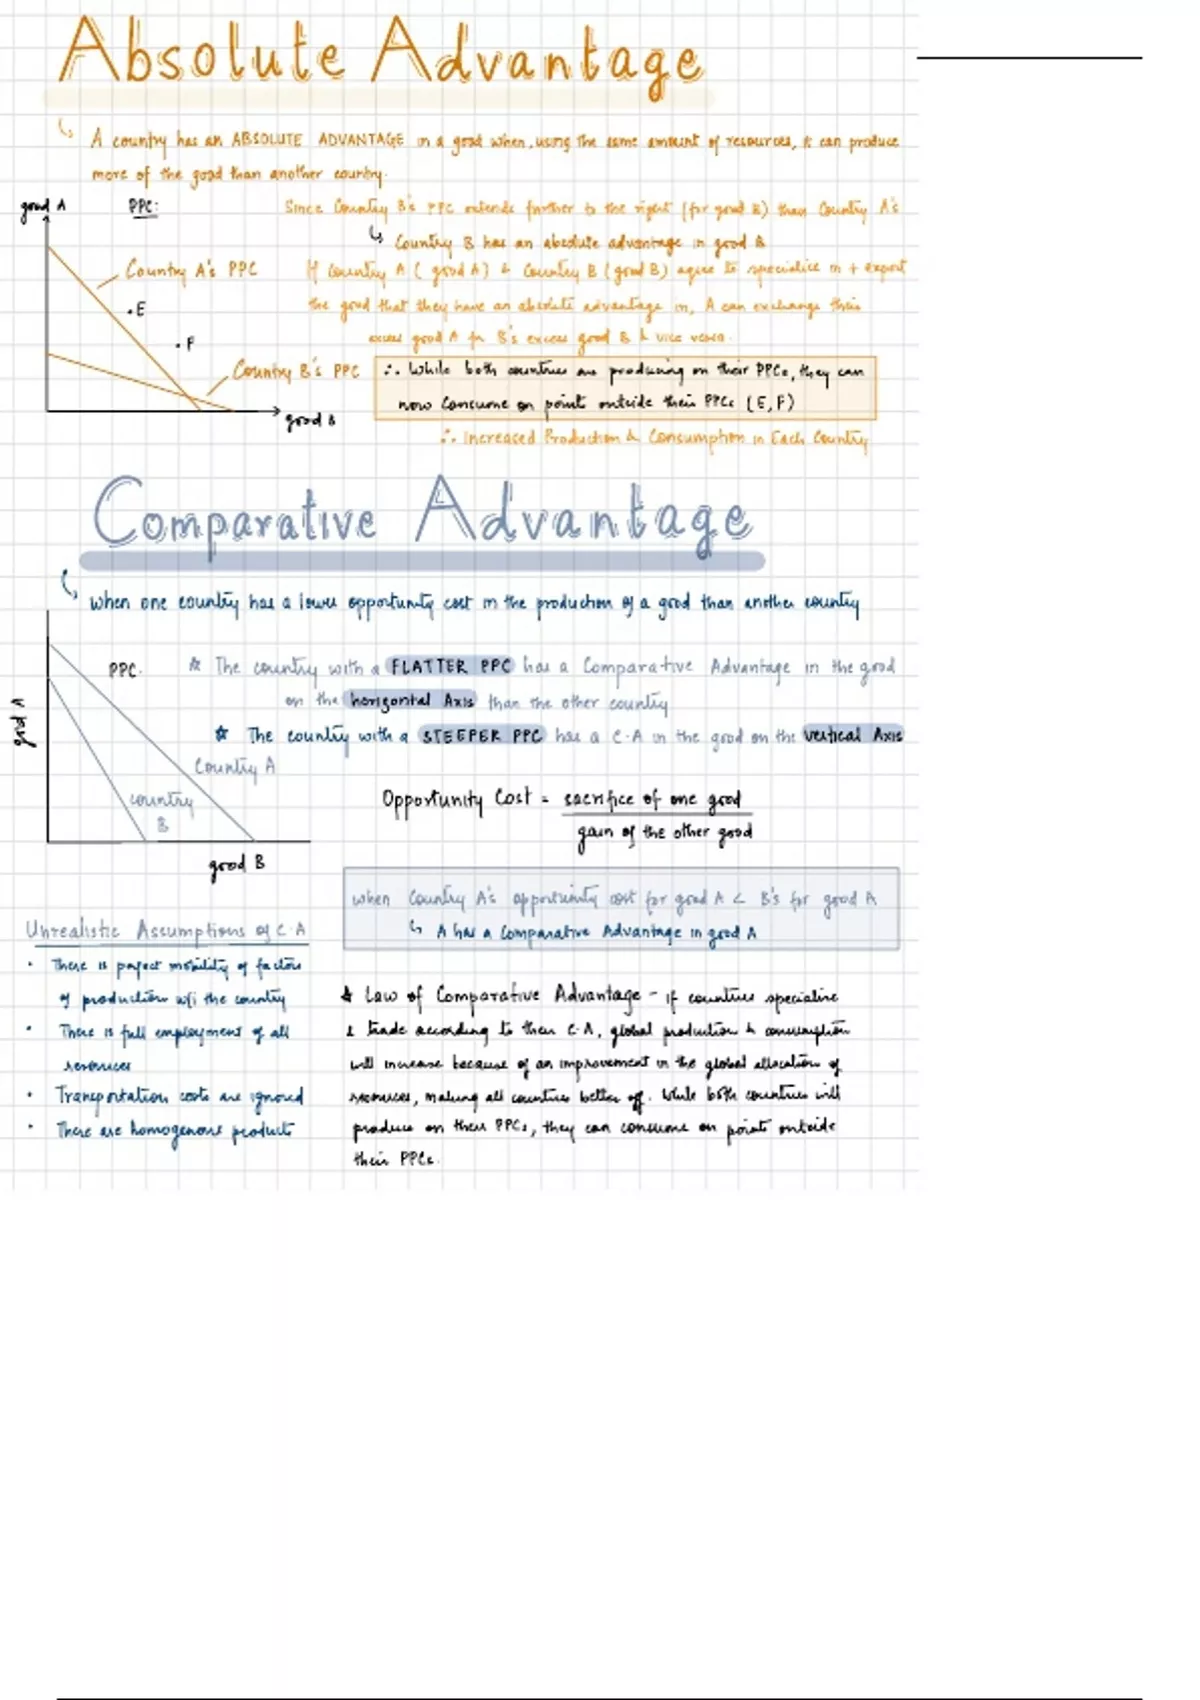 Absolute Advantage
↳ A country has an ABSOLUTE ADVANTAGE in a good when, using the same amount of resources, it can produce
more of the good than another country.
good A
PPC:
Since Country B's PPC extends further to the right (for good B) than Country A's
↳ Country B has an absolute advantage in good B
Country A's PPC
If Country A (good A) & Country B (good B) agree to specialize in + export
the good that they have an absolute advantage in, A can exchange their
excess good A for B's excess good B & vice versa.
•E
•F
Country B's PPC
∴ While both countries are producing on their PPCs, they can
now consume on points outside their PPCs (E, F)
good B
∴ Increased Production & Consumption in Each Country
Comparative Advantage
↳ when one country has a lower opportunity cost in the production of a good than another country
PPC:
☆ The country with a FLATTER PPC has a Comparative Advantage in the good
on the horizontal Axis than the other country
☆ The country with a STEEPER PPC has a C.A in the good on the vertical Axis
good A
Country A
country
B
good B
Opportunity Cost = sacrifice of one good
gain of the other good
when Country A's opportunity cost for good A < B's for good A
↳ A has a Comparative Advantage in good A
Unrealistic Assumptions of C.A
• There is perfect mobility of factors
of production w/i the country
• There is full employment of all
resources
• Transportation costs are ignored
• There are homogenous products
☆ Law of Comparative Advantage - if countries specialize
& trade according to their C.A, global production & consumption
will increase because of an improvement in the global allocation of
resources, making all countries better off. While both countries will
produce on their PPCs, they can consume on points outside
their PPCs.